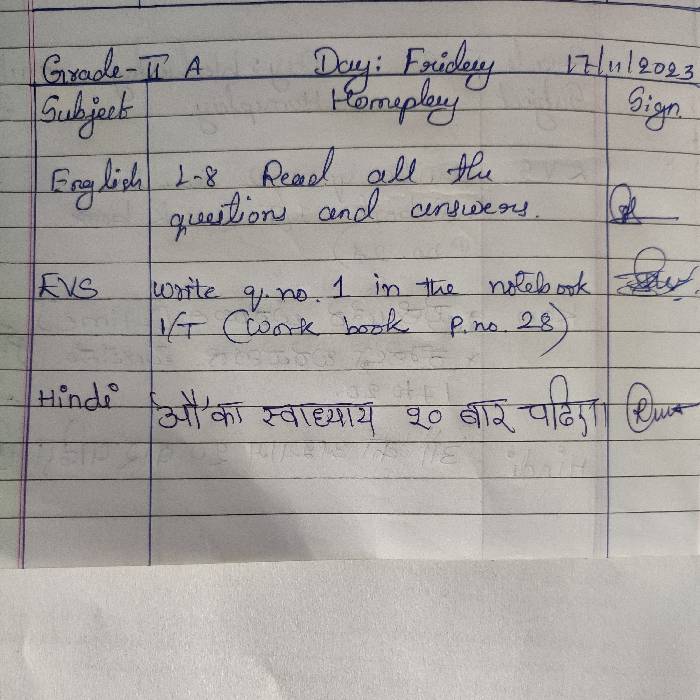 Grade-II A Day: Friday 17/11/2023
Subject Homeplay Sign.
English L-8 Read all the
questions and answers.
EVS Write q. no. 1 in the notebook
I/T (Work book P. no. 28)
Hindi 'औ' का स्वाध्याय २० बार पढिए।